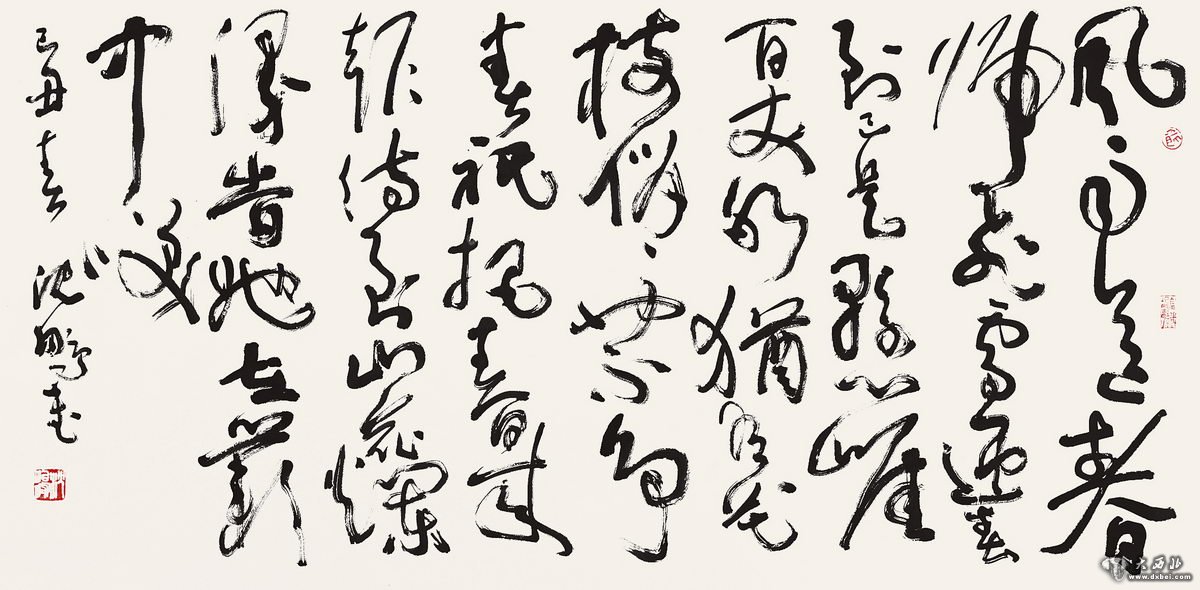 風雨送春
歸飛雪迎春
到已是懸崖
百丈冰猶有花
枝俏〻也不爭
春祇把春來
報待到山花爛
漫旹她在叢
中笑
己丑春 沈鵬書
大西北
www.dxbei.com